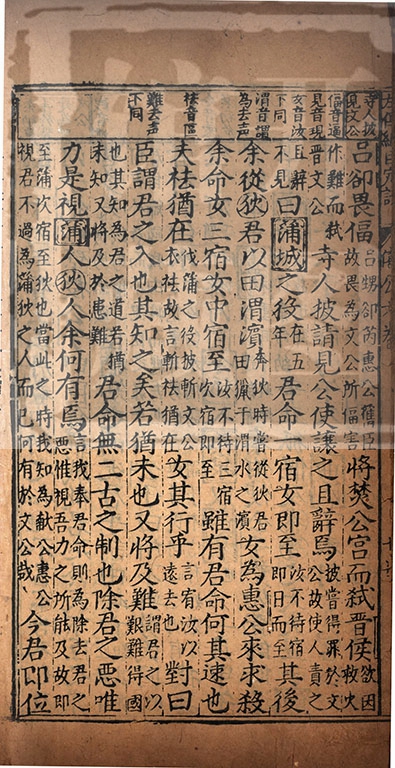 寺人披
見文公
呂卻畏偪
呂甥卻芮惠公舊臣
故畏為文公所偪害
將焚公宮而弒晉侯
欲因
救火
偪音逼
見音現
作難而弒
晉文公
寺人披請見公使讓之且辭焉
披嘗得罪於文
公故使人責之
女音汝
下同
且辭
不見
曰蒲城之役
在五
年
君命一宿女即至
汝不待宿
即日而至
其後
渭音謂
為去声
余從狄君以田渭濱
奔狄時嘗從狄君
田獵于渭水之濱
女為惠公來求殺
余命女三宿女中宿至
汝不待三宿
次宿即至
雖有君命何其速也
袪音區
夫袪猶在
伐蒲之役披斬文公
衣袪故言斬袪猶在
女其行乎
言宜汝以
遠去也
對曰
難去声
下同
臣謂君之入也其知之矣若猶未也又將及難
謂君之
艱難得國
也其知為君之道若猶
未知又將及於患難
君命無二古之制也除君之惡唯
力是視蒲人狄人余何有焉
言我奉君命則為除去君之
惡惟視吾力之所能及故即
至蒲次宿至狄也當此之時我知為獻公惠公
視君不過為蒲狄之人而已何有於文公哉
今君即位